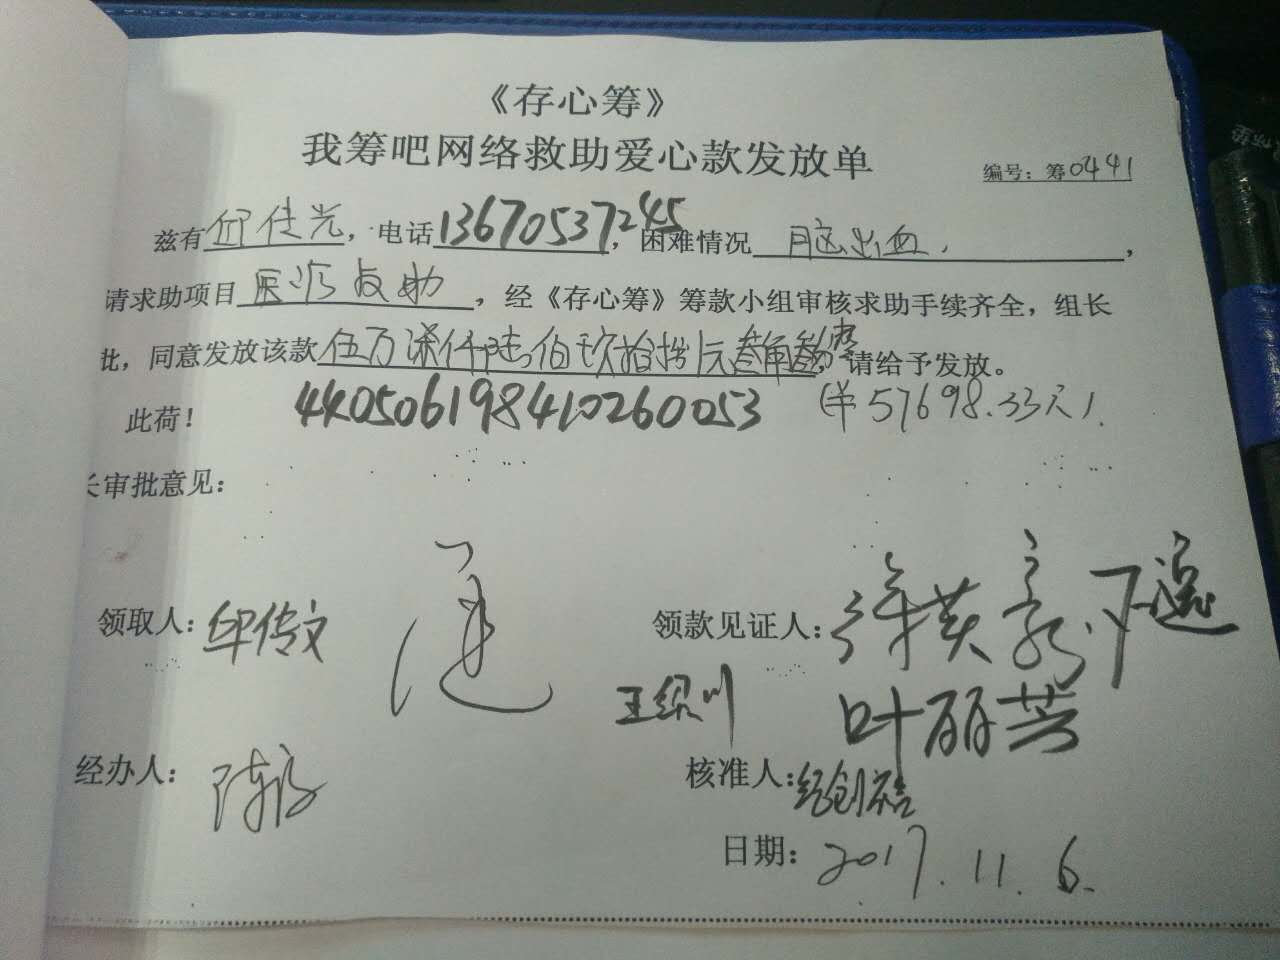 《存心筹》
我筹吧网络救助爱心款发放单
编号：筹0441
兹有邱传光，电话13670537245，困难情况 脑出血，
请求助项目医疗救助，经《存心筹》筹款小组审核求助手续齐全，组长
批，同意发放该款伍万柒仟陆佰玖拾捌元叁角叁分，请给予发放。
此荷！ 440506198410260053 (￥57698.33元).
长审批意见：
领取人：邱传文 领款见证人：许英
王绵川 叶丽芸
经办人：陈 核准人：纪创
日期：2017.11.6.